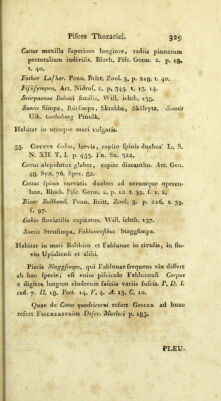 Pisces Thoracici. 329
Cottus maxilla superiore longiore, radiis pinnarum
pectoralium indivisis. Bloch, Fisc. Germ. 2. p. 18.
t. 40.
Father Lasher. Penn. Britt. Zool. 3. p. 218. t. 40.
Fisksympen. Act. Nidros. 2. p. 345. t. 13. 14.
Scorpaenae Belonii similis, Will. ichth. 138.
Suecis Simpa, Rötsimpa, Skrabba, Skälryta, Scanis
Ulk. Gothoburg Pinulk.
Habitat in utroque mari vulgaris.
55. COTTUS Gobio, laevis, capite spinis duabus L. S.
N. XII. T. I. p. 453. Fn. Sv. 322.
Cottus alepidotus glaber, capite diacantho. Art. Gen.
48. Syn. 76. Spec. 82.
Cottus spinis curvatis duabus ad utrumque opercu-
lum. Bloch. Fisc. Germ. 2. p. 12. t. 39. f. 1. 2.
River Bullhead. Penn. Britt. Zool. 3. p. 216. t. 39.
f. 97.
Gobio fluviatilis capitatus. Will. ichth. 137.
Suecis Stensimpa, Fahlunensibus Staggsimpa.
Habitat in mari Balthico et Fahlunae in rivulis, in flu-
vio Upsaliensi et alibi.
Piscis Slaggsimpa, qui Fahlunae frequens vix differt
ab hac specie; est enim pisciculo Fahlunensi Corpus
2 digitos longum cinereum fasciis variis fuscis. P. D. I.
rad. 7. II. 18. Pect. 14. V. 4. A. 13. C. 10.
Quae de Cotto quadricorni refert GISLER ad hunc
refert FISCHERSTRÖM Descr. Maeleri p. 185.
PLEU-